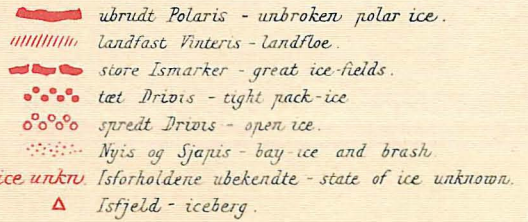 ubrudt Polaris - unbroken polar ice.
landfast Vinteris - landfloe.
store Ismarker - great ice-fields.
tæt Drivis - tight pack-ice
spredt Drivis - open ice.
Nyis og Sjapis - bay-ice and brash.
ice unkn. Isforholdene ubekendte - state of ice unknown.
Isfjeld - iceberg.